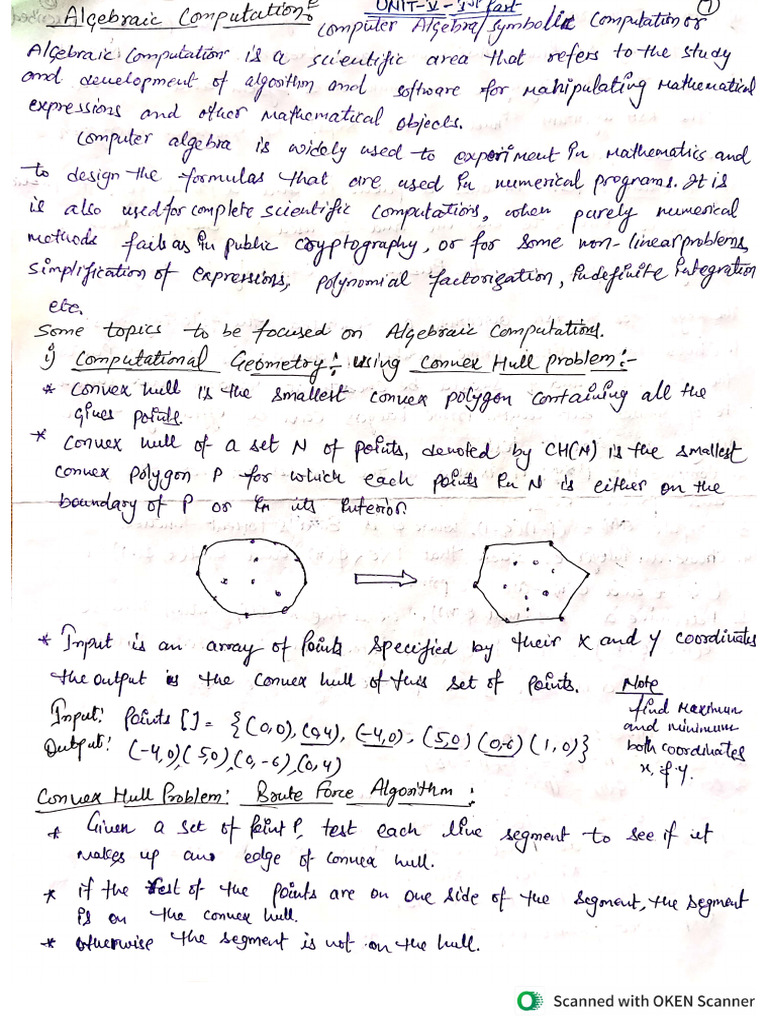 UNIT-V - Ist Part
1
Algebraic Computation:
Computer Algebra/Symbolic Computation or
Algebraic Computation is a scientific area that refers to the study
and development of algorithm and software for Manipulating Mathematical
expressions and other Mathematical objects.
Computer algebra is widely used to experiment in Mathematics and
to design the formulas that are used in numerical programs. It is
is also used for complete scientific computations, when purely numerical
methods fails as in public cryptography, or for some non-linear problems,
simplification of expressions, polynomial factorization, indefinite integration
etc.
Some topics to be focused on Algebraic Computations.
i) Computational Geometry: using Convex Hull problem:-
* Convex hull is the smallest convex polygon containing all the
given points.
* Convex hull of a set N of points, denoted by CH(N) is the smallest
convex polygon P for which each points in N is either on the
boundary of P or in its interior.
* Input is an array of points specified by their x and y coordinates
the output is the convex hull of this set of points.
Note
find Maximum
and minimum
both coordinates
x, & y.
Input: Points [] = {(0,0), (0,4), (-4,0), (5,0) (0,-6) (1,0)}
Output: (-4,0), (5,0), (0,-6), (0,4)
Convex Hull Problem: Brute Force Algorithm:
* Given a set of point P, test each line segment to see if it
makes up an edge of convex hull.
* if the rest of the points are on one side of the segment, the segment
is on the convex hull.
* otherwise the segment is not on the hull.
Scanned with OKEN Scanner